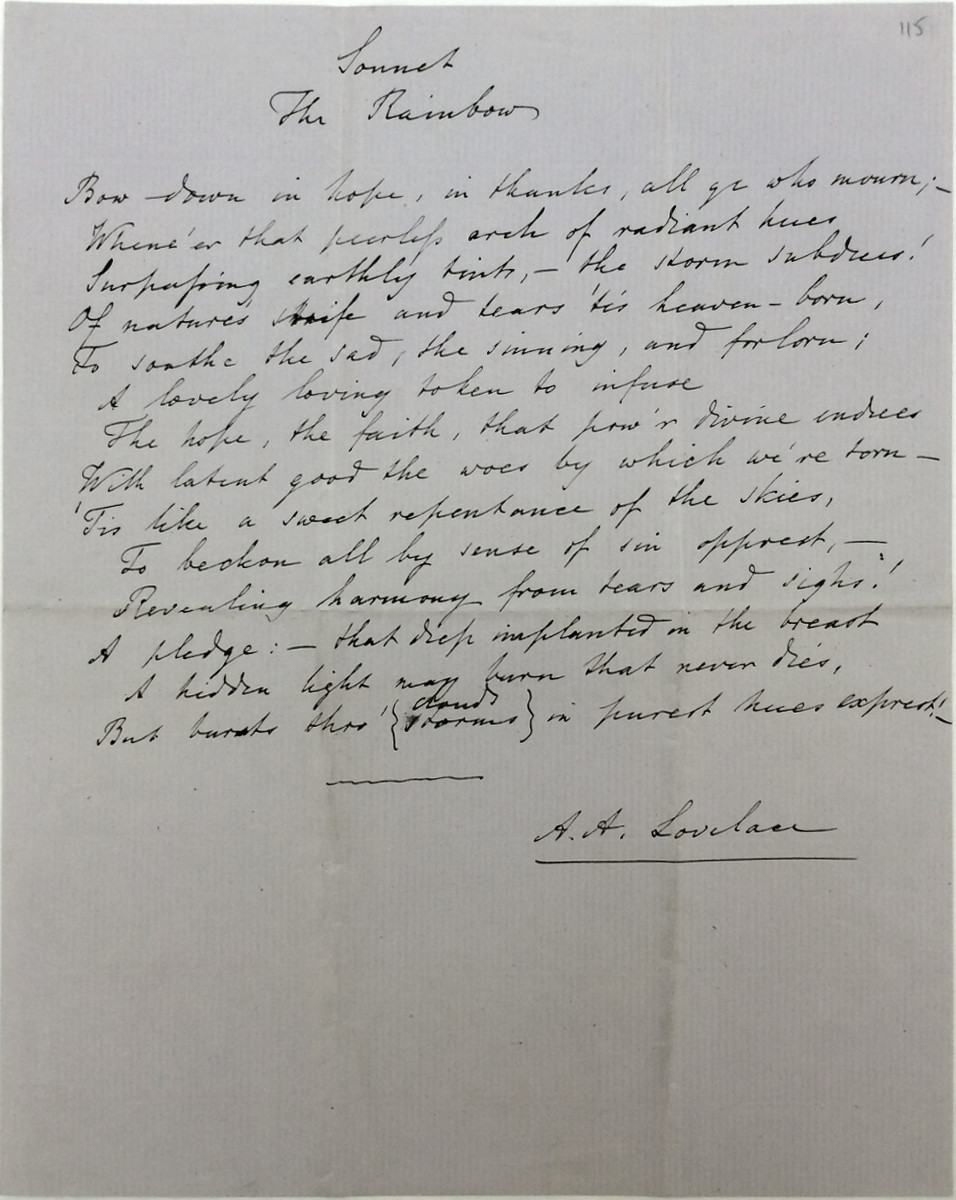 115
Sonnet
The Rainbow
Bow down in hope, in thanks, all ye who mourn;–
Whene'er that peerless arch of radiant hues
Surpassing earthly tints,– the storm subdues!
Of natures strife and tears 'tis heaven-born,
To soothe the sad, the sinning, and forlorn;
A lovely loving token to infuse
The hope, the faith, that pow'r divine endues
With latent good the woes by which we're torn –
'Tis like a sweet repentance of the skies,
To beckon all by sense of sin opprest, –
Revealing harmony from tears and sighs!
A pledge: – that deep implanted in the breast
A hidden light may burn that never dies,
But bursts thro' { clouds storms } in purest hues exprest! –
A. A. Lovelace